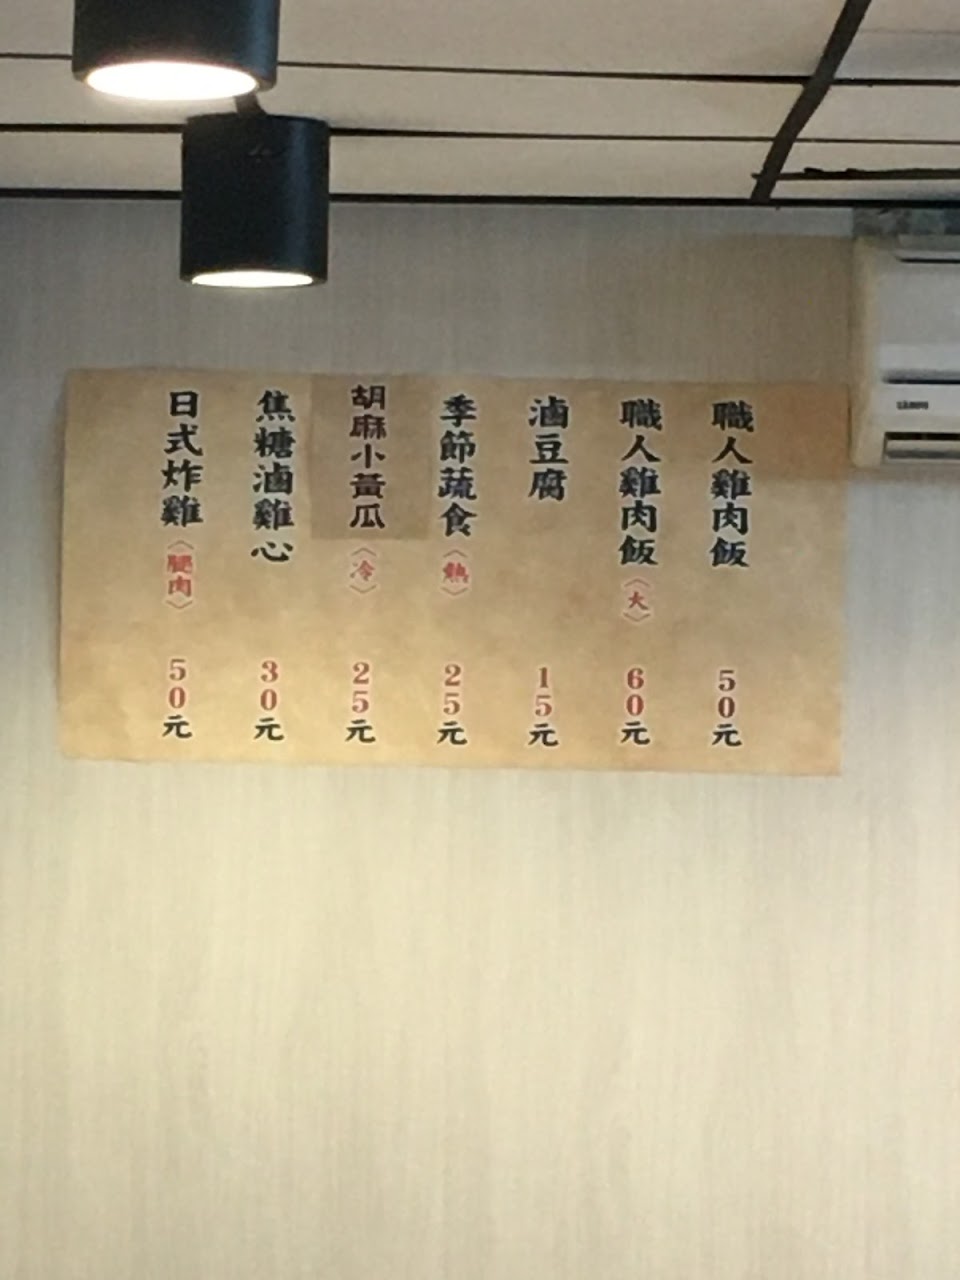 職人雞肉飯 50元
職人雞肉飯〈大〉 60元
滷豆腐 15元
季節蔬食〈熱〉 25元
胡麻小黃瓜〈冷〉 25元
焦糖滷雞心 30元
日式炸雞〈腿肉〉 50元